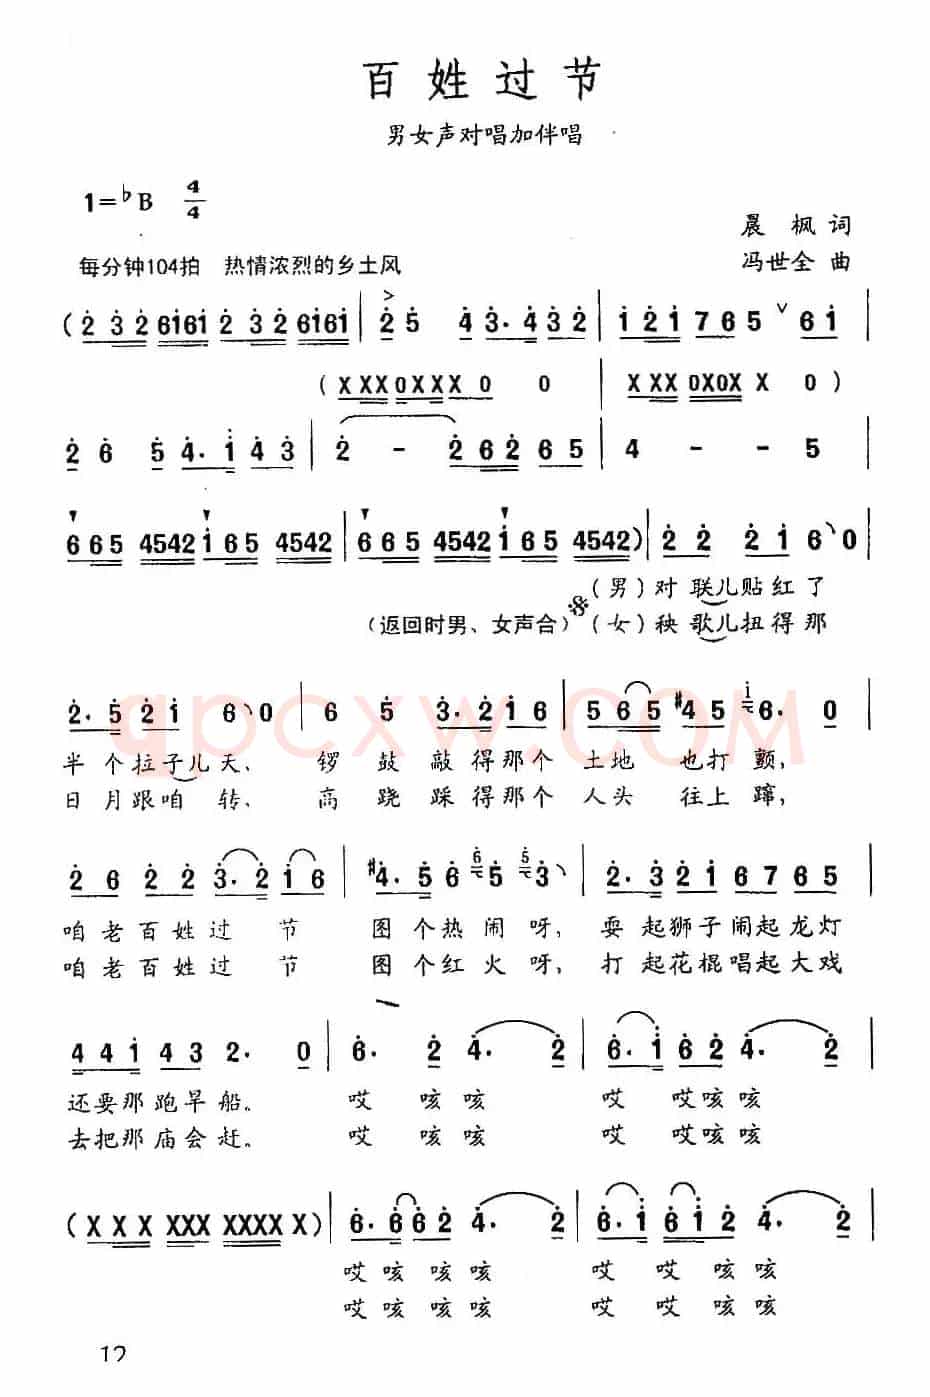 百姓过节
男女声对唱加伴唱
1=♭B 4/4
晨 枫 词
每分钟104拍 热情浓烈的乡土风
冯世全 曲
(2 3 2 6161 2 3 2 6161 | 2 5 4 3· 4 3 2 | 1 2 1 7 6 5 ∨ 6 1
(X XX 0XXX X 0 0 | X XX 0X0X X 0)
2 6 5 4· 1 4 3 | 2 - 2 6 2 6 5 | 4 - - 5 |
6 6 5 4542 1 6 5 4542 | 6 6 5 4542 1 6 5 4542) | 2 2 2 1 6 0 |
(男)对 联儿贴 红 了
(返回时男、女声合) (女)秧 歌儿扭 得 那
2· 5 2 1 6 0 | 6 5 3· 2 1 6 | 5 6 5 #4 5 6· 0
半 个 拉子儿天、 锣 鼓 敲 得 那 个 土 地 也 打 颤,
日 月 跟 咱 转、 高 跷 踩 得 那 个 人 头 往 上 蹿,
2 6 2 2 3· 2 1 6 | #4· 5 6 5 3 | 2· 3 2 1 6 7 6 5
咱 老 百 姓 过 节 图 个 热 闹 呀, 耍 起 狮 子 闹 起 龙 灯
咱 老 百 姓 过 节 图 个 红 火 呀, 打 起 花 棍 唱 起 大 戏
4 4 1 4 3 2· 0 | 6· 2 4· 2 | 6· 1 6 2 4· 2 |
还 要 那 跑 旱 船。 哎 咳 咳 哎 哎 咳 咳
去 把 那 庙 会 赶。 哎 咳 咳 哎 哎 咳 咳
(X X X XXX XXXX X) | 6· 6 6 2 4· 2 | 6· 1 6 1 2 4· 2 |
哎 咳 咳 咳 哎 哎 咳 咳
哎 咳 咳 咳 哎 哎 咳 咳
12
qpcxw.COM